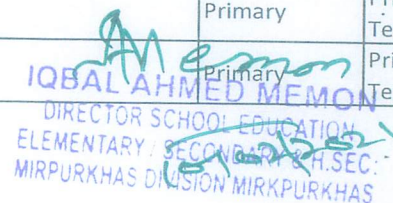 Primary
Te
Primary
Pri
Te
IQBAL AHMED MEMON
DIRECTOR SCHOOL EDUCATION
ELEMENTARY, SECONDARY & H.SEC:-
MIRPURKHAS DIVISION MIRKPURKHAS